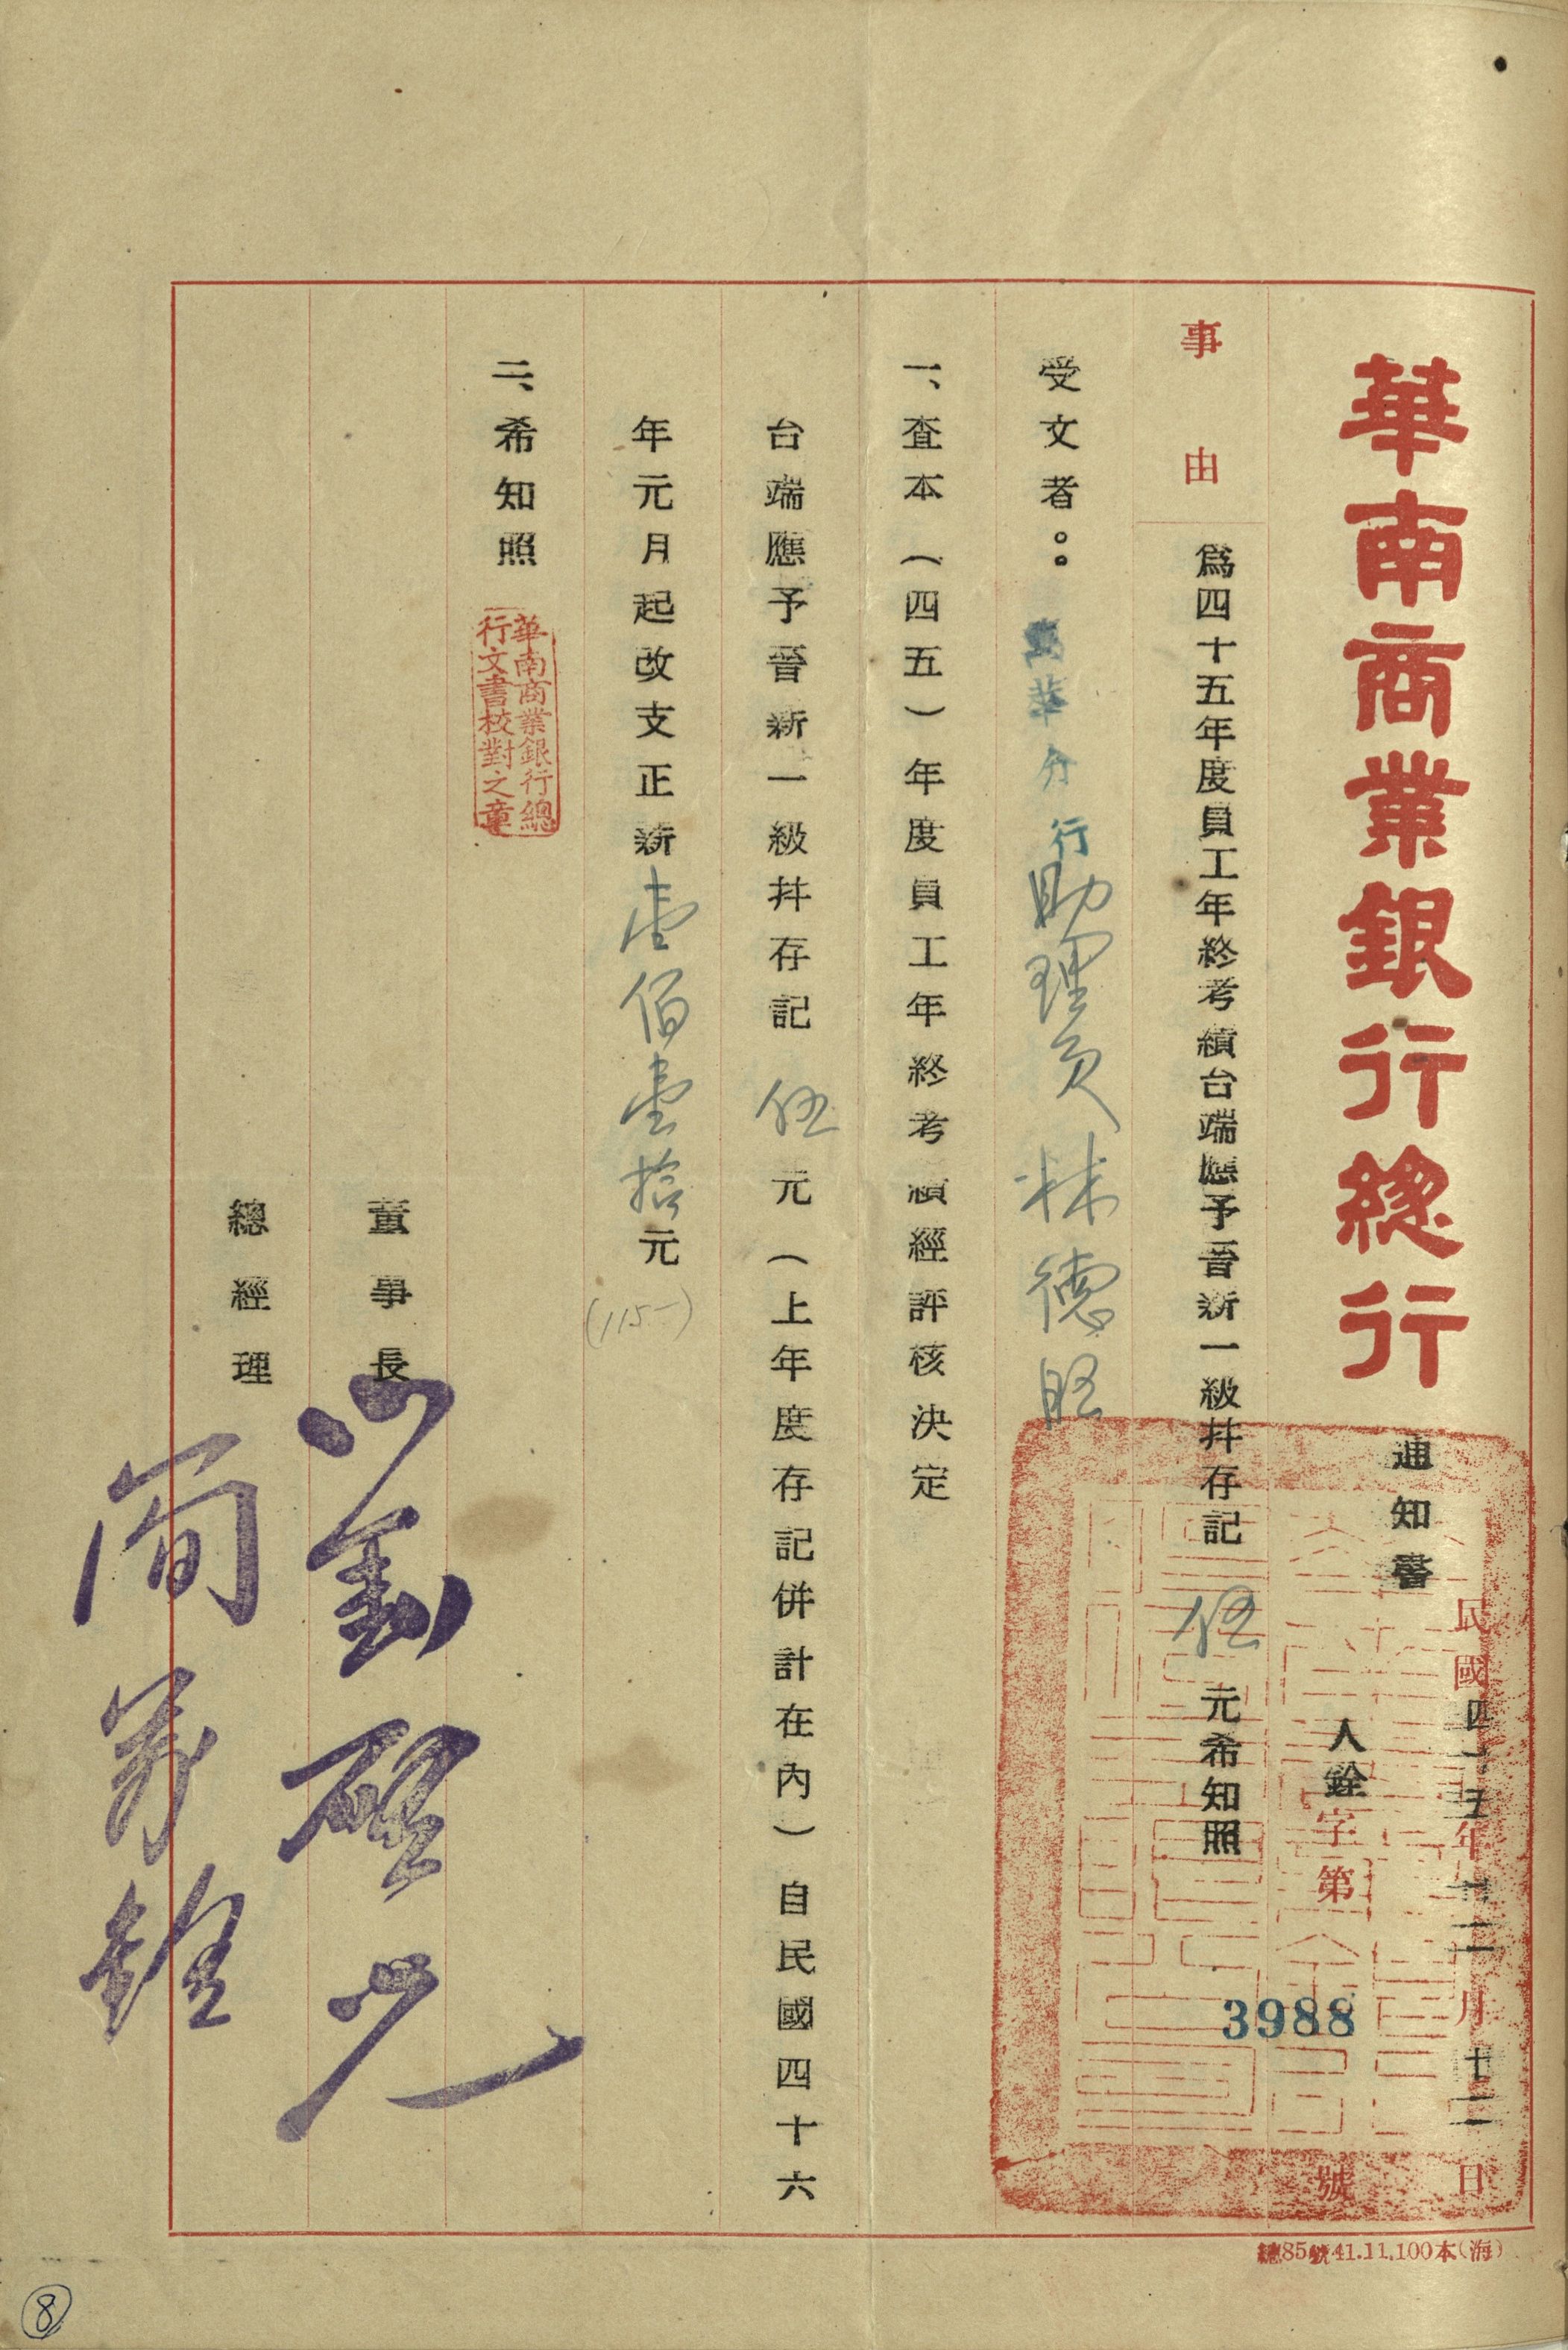 華南商業銀行總行
通知書
民國四十五年十二月十二日
人銓字第3988號
事由
為四十五年度員工年終考績台端應予晉薪一級并存記伍元希知照
受文者：萬華分行助理員林德旺
一、查本（四五）年度員工年終考績經評核決定
台端應予晉薪一級并存記伍元（上年度存記併計在內）自民國四十六
年元月起改支正薪壹佰壹拾元
(115-)
二、希知照
華南商業銀行總
行文書校對之章
董事長
劉啟光
總經理
總85號41.11.100本(海)
8